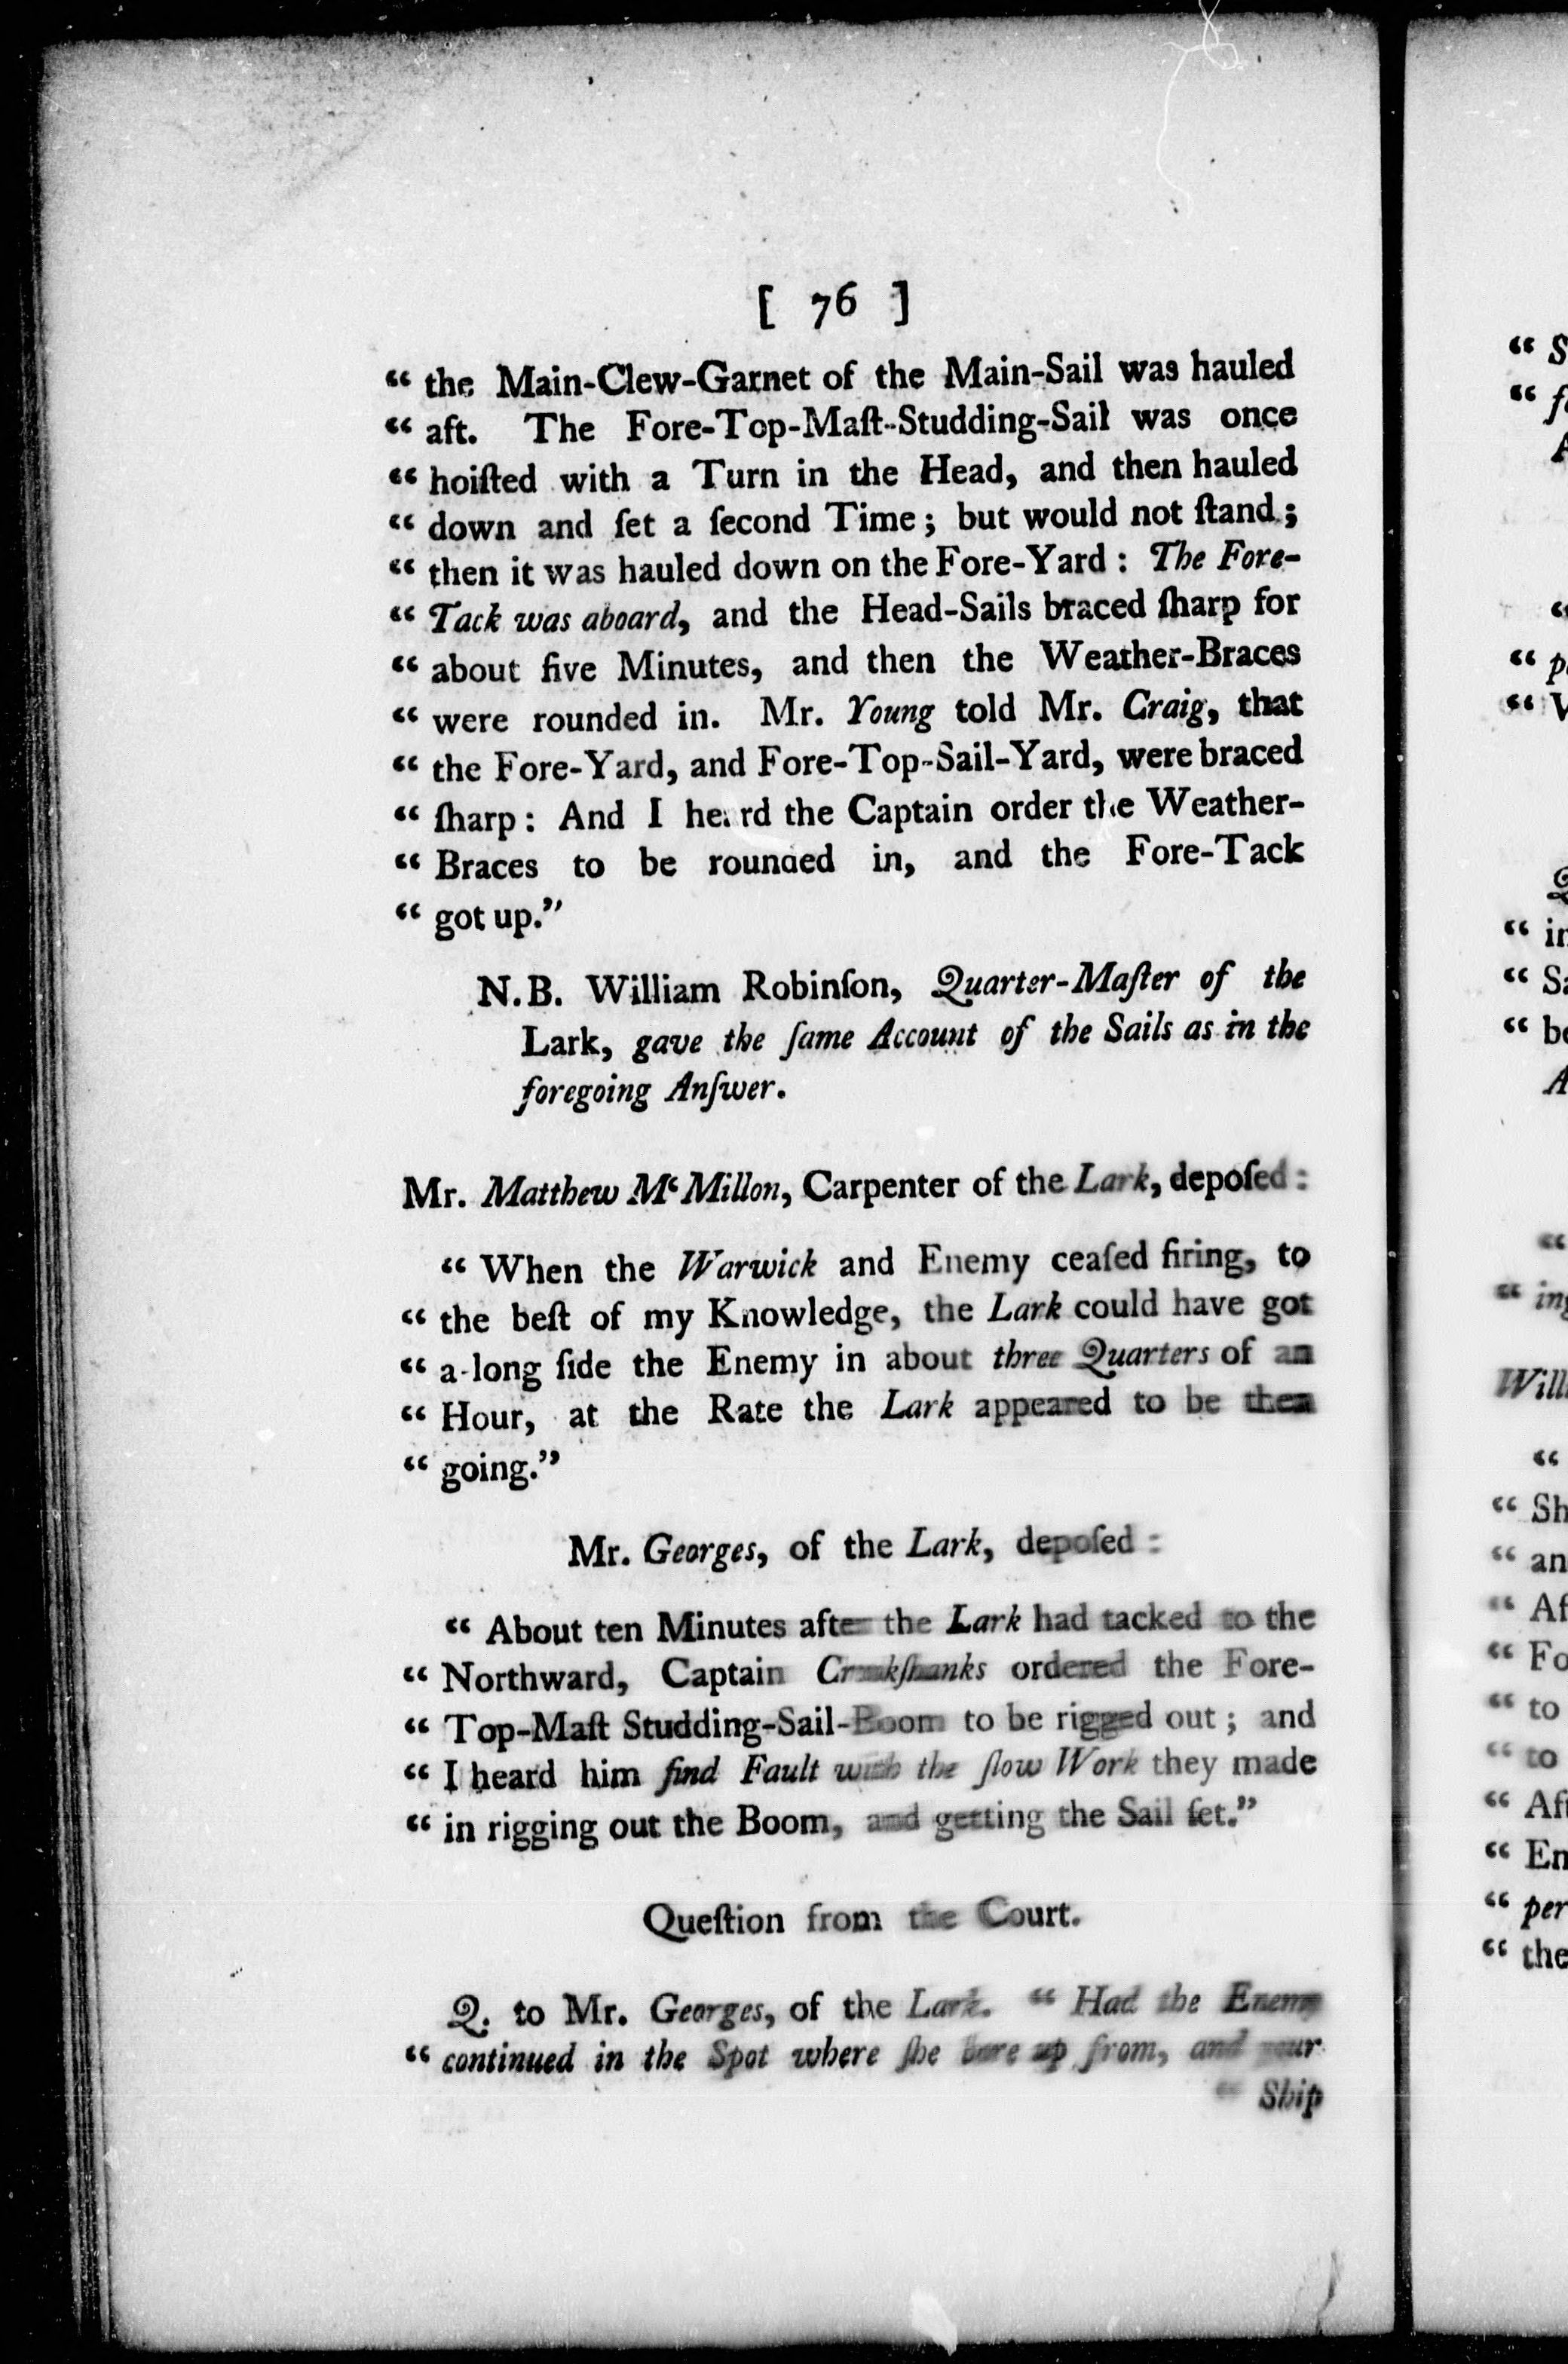 [ 76 ]
“ the Main-Clew-Garnet of the Main-Sail was hauled
“ aft. The Fore-Top-Maſt-Studding-Sail was once
“ hoiſted with a Turn in the Head, and then hauled
“ down and ſet a ſecond Time; but would not ſtand;
“ then it was hauled down on the Fore-Yard: The Fore-
“ Tack was aboard, and the Head-Sails braced ſharp for
“ about five Minutes, and then the Weather-Braces
“ were rounded in. Mr. Young told Mr. Craig, that
“ the Fore-Yard, and Fore-Top-Sail-Yard, were braced
“ ſharp: And I heard the Captain order the Weather-
“ Braces to be rounded in, and the Fore-Tack
“ got up.”
N.B. William Robinſon, Quarter-Maſter of the
Lark, gave the ſame Account of the Sails as in the
foregoing Anſwer.
Mr. Matthew Mc Millon, Carpenter of the Lark, depoſed:
“ When the Warwick and Enemy ceaſed firing, to
“ the beſt of my Knowledge, the Lark could have got
“ a-long ſide the Enemy in about three Quarters of an
“ Hour, at the Rate the Lark appeared to be then
“ going.”
Mr. Georges, of the Lark, depoſed:
“ About ten Minutes after the Lark had tacked to the
“ Northward, Captain Crookſhanks ordered the Fore-
“ Top-Maſt Studding-Sail-Boom to be rigged out; and
“ I heard him find Fault with the ſlow Work they made
“ in rigging out the Boom, and getting the Sail ſet.”
Queſtion from the Court.
Q. to Mr. Georges, of the Lark. “ Had the Enemy
“ continued in the Spot where ſhe bore up from, and your
“ Ship